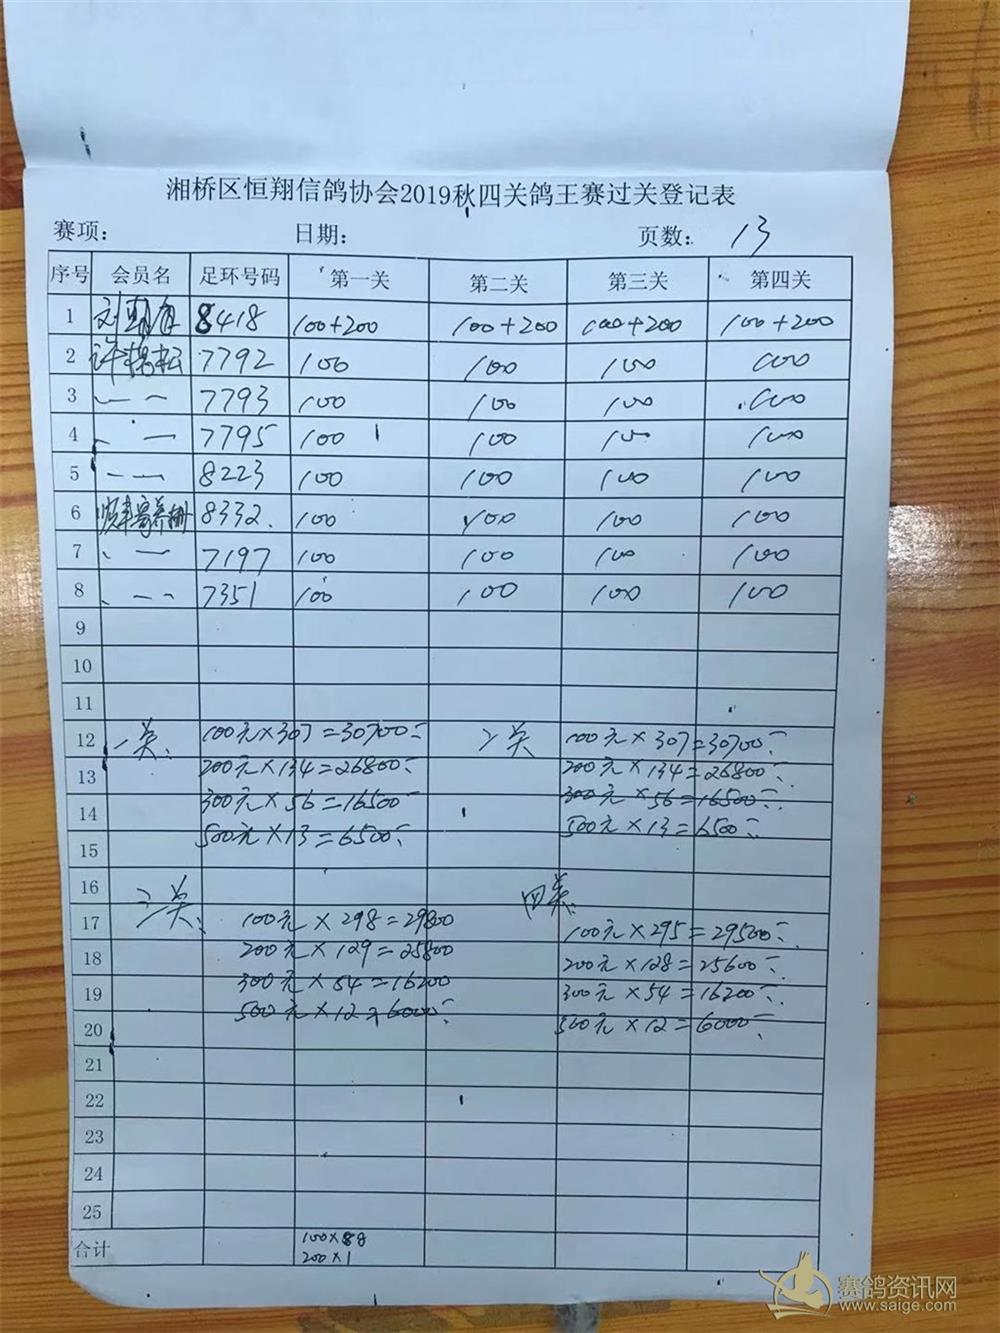 湘桥区恒翔信鸽协会2019秋四关鸽王赛过关登记表
赛项: 日期: 页数: 13
序号 会员名 足环号码 第一关 第二关 第三关 第四关
1 8418 100+200 100+200 100+200 100+200
2 7792 100 100 100 100
3 7793 100 100 100 100
4 7795 100 100 100 100
5 8223 100 100 100 100
6 8332 100 100 100 100
7 7197 100 100 100 100
8 7351 100 100 100 100
9
10
11
12 一关: 100元×307=30700 二关 100元×307=30700
13 200元×134=26800 200元×134=26800
14 300元×56=16500 300元×56=16500
15 500元×13=6500 500元×13=6500
16 三关: 四关:
17 100元×298=29800 100元×295=29500
18 200元×129=25800 200元×128=25600
19 300元×54=16200 300元×54=16200
20 500元×12=6000 500元×12=6000
21
22
23
24
25
合计 100×88
200×1
赛鸽资讯网
www.saige.com